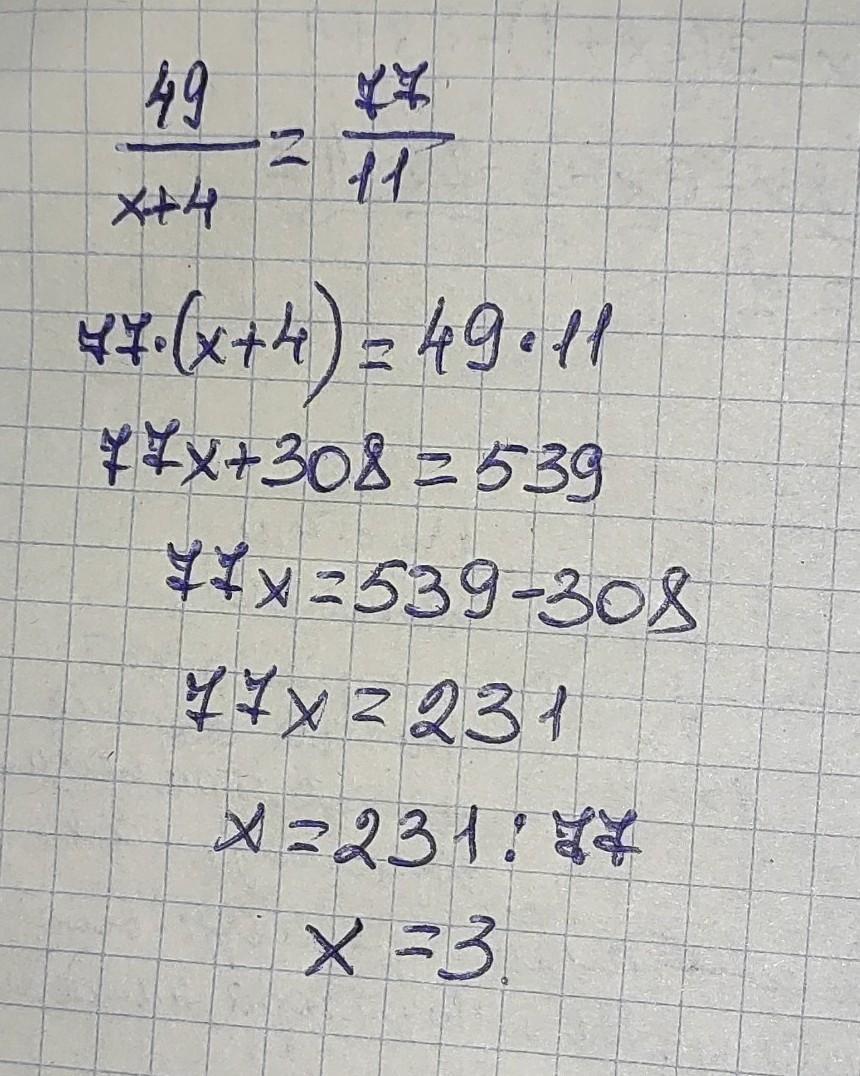 49/(x+4) = 77/11
77·(x+4) = 49·11
77x+308=539
77x=539-308
77x=231
x=231:77
x=3.